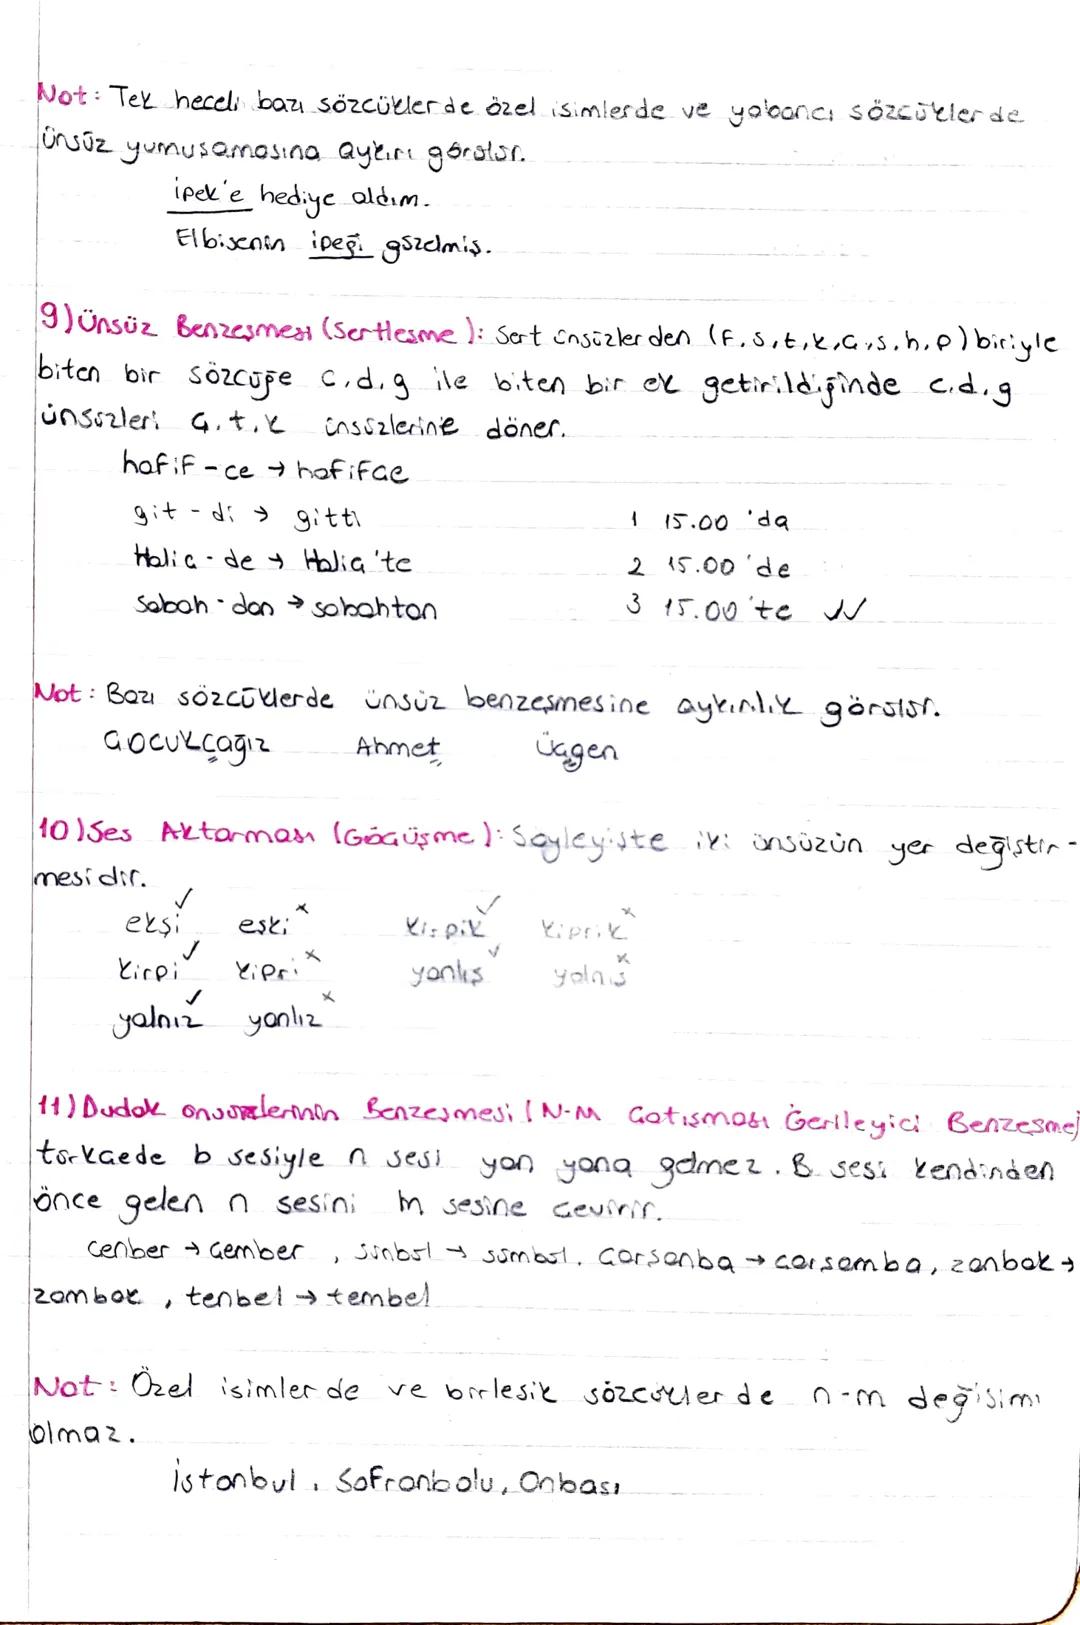 Not: Tek heceli bazı sözcüklerde özel isimlerde ve yabancı sözcüklerde
ünsüz yumusamasına aykırı görülür.
ipek'e hediye aldım.
Elbisenin ipeği güzelmiş.
9) Ünsüz Benzeşmesi (Sertleşme): Sert ünsüzlerden (F,s,t,k,ç,ş,h,p) biriyle
biten bir sözcüğe c,d,g ile biten bir ek getirildiğinde c,d,g
ünsüzleri ç,t,k ünsüzlerine döner.
hafif-ce → hafifçe
git-di → gitti
1 15.00 'da
Haliç-de → Haliç'te
2 15.00 'de
sabah-dan → sabahtan
3 15.00 'te ✓✓
Not: Bazı sözcüklerde ünsüz benzeşmesine aykırılık görülür.
çocukçağız Ahmet Üçgen
10) Ses Aktarması (Göçüşme): Söyleyişte iki ünsüzün yer değiştir-
mesidir.
ekşi ✓ eski × kirpik ✓ kiprik ×
kirpi ✓ kipri × yanlış ✓ yalnış ×
yalnız ✓ yanlız ×
11) Dudak ünsüzlerinin Benzeşmesi (N-M Çatışması Gerileyici Benzeşme)
türkçede b sesiyle n sesi yan yana gelmez. B sesi kendinden
önce gelen n sesini m sesine çevirir.
çenber → çember, sünbül → sümbül, çarşanba → çarşamba, zanbak →
zambak, tenbel → tembel
Not: Özel isimlerde ve birlesik sözcüklerde n-m değisimi
olmaz.
istanbul, Safranbolu, Onbaşı